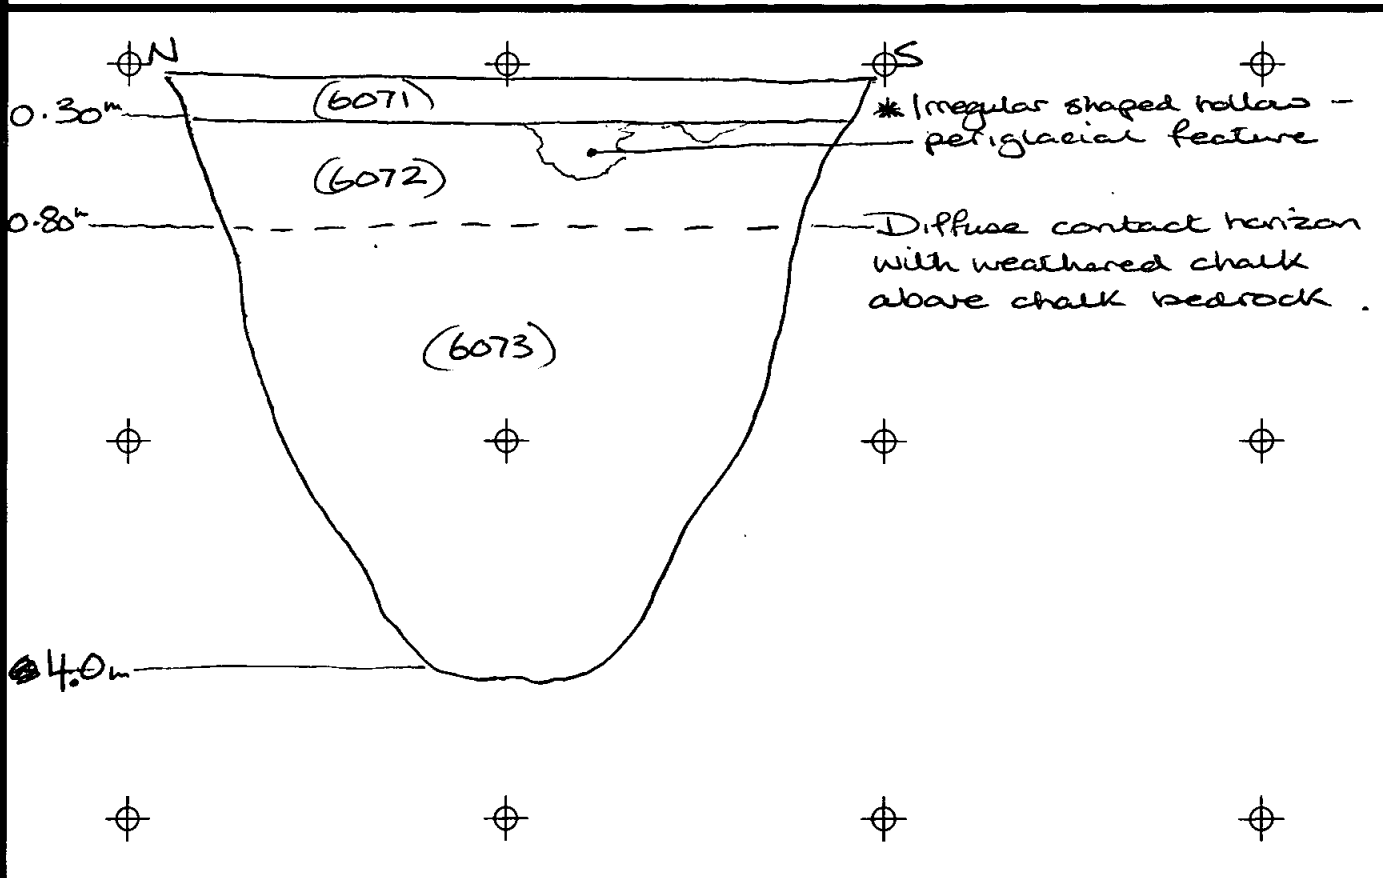 N
S
(6071)
0.30m
* Irregular shaped hollow -
periglacial feature
(6072)
0.80m
Diffuse contact horizon
with weathered chalk
above chalk bedrock.
(6073)
4.0m